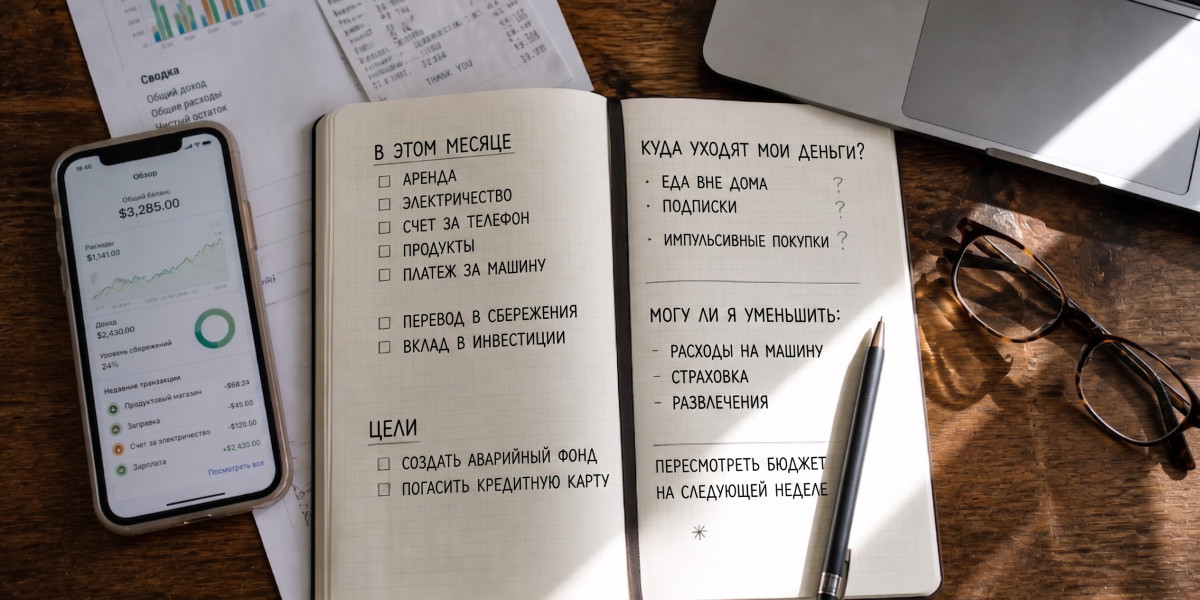 Сводка
Общий доход
Общие расходы
Чистый остаток
THANK YOU
16:46
Обзор
Общий баланс
$3,285.00
Расходы
$1,141.00
Доход
$2,430.00
Уровень сбережений
24%
Недавние транзакции
Продуктовый магазин -$68.24
Заправка -$45.00
Счет за электричество -$120.50
Зарплата +$2,430.00
Посмотреть все
В ЭТОМ МЕСЯЦЕ
АРЕНДА
ЭЛЕКТРИЧЕСТВО
СЧЕТ ЗА ТЕЛЕФОН
ПРОДУКТЫ
ПЛАТЕЖ ЗА МАШИНУ
ПЕРЕВОД В СБЕРЕЖЕНИЯ
ВКЛАД В ИНВЕСТИЦИИ
ЦЕЛИ
СОЗДАТЬ АВАРИЙНЫЙ ФОНД
ПОГАСИТЬ КРЕДИТНУЮ КАРТУ
КУДА УХОДЯТ МОИ ДЕНЬГИ?
· ЕДА ВНЕ ДОМА ?
· ПОДПИСКИ ?
· ИМПУЛЬСИВНЫЕ ПОКУПКИ ?
МОГУ ЛИ Я УМЕНЬШИТЬ:
- РАСХОДЫ НА МАШИНУ
- СТРАХОВКА
- РАЗВЛЕЧЕНИЯ
ПЕРЕСМОТРЕТЬ БЮДЖЕТ
НА СЛЕДУЮЩЕЙ НЕДЕЛЕ